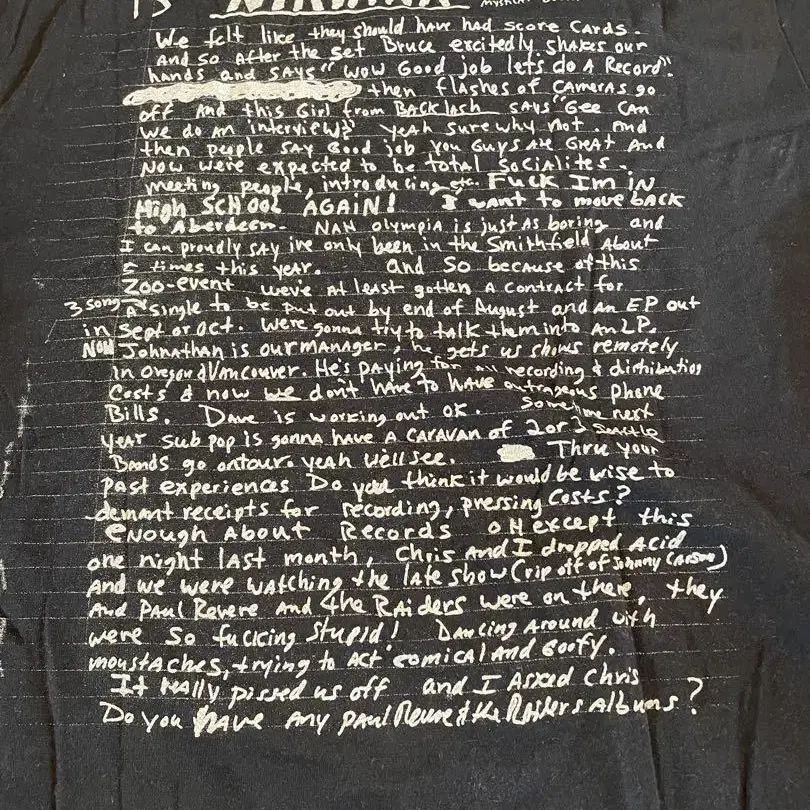 is NIRVANA
We felt like they should have had score cards.
And so after the set Bruce excitedly shakes our
hands and says "wow Good job let's do A Record".
then flashes of cameras go
off And this Girl from BACKLASH says "Gee can
we do an interview? yeah sure why not. And
then people SAY Good job you Guys are GREAT And
Now were expected to be total Socialites.
meeting people, introducing etc. FUCK Im in
High SCHOOL AGAIN! I want to move back
to Aberdeen. NAH Olympia is just as boring and
I can proudly SAY ive only been in the Smithfield About
5 times this year. And so because of this
Zoo-event weve At least gotten a contract for
3 song A single to be put out by end of August and an EP out
in Sept or Oct. Were gonna try to talk them into An LP.
Now Johnathan is our manager, he gets us shows remotely
in Oregon & Vancouver. He's paying for all recording & distribution
Costs & now we don't have to have outrageous phone
Bills. Dave is working out OK. Sometime next
year sub pop is gonna have A CARAVAN of 2 or 3 Seattle
Bands go on tour. yeah we'll see. Thru your
past experiences Do you think it would be wise to
demant receipts for recording, pressing Costs?
enough About Records OH except this
one night last month, Chris And I dropped Acid
And we were watching the late show (rip off of Johnny Carson)
And Paul Revere And the Raiders were on there, they
were so fucking stupid! Dancing Around with
moustaches, trying to Act comical and Goofy.
It really pissed us off and I Asked Chris
Do you have Any Paul Revere & the Raiders Albums?